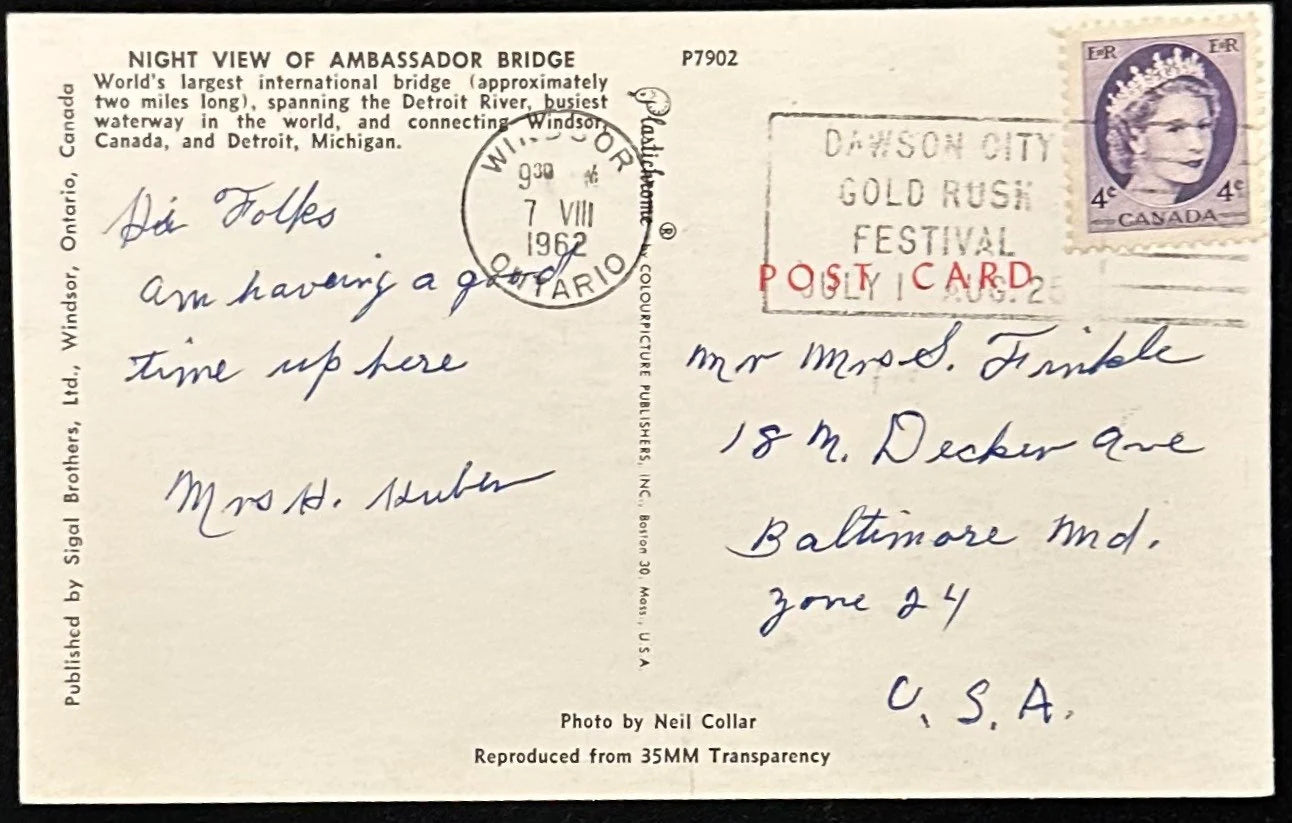 NIGHT VIEW OF AMBASSADOR BRIDGE
World's largest international bridge (approximately
two miles long), spanning the Detroit River, busiest
waterway in the world, and connecting Windsor,
Canada, and Detroit, Michigan.
Published by Sigal Brothers, Ltd., Windsor, Ontario, Canada
Hi Folks
am having a good
time up here
Mrs H. Huber
WINDSOR
9 30
7 VIII
1962
ONTARIO
Plastichrome ® by COLOURPICTURE PUBLISHERS, INC., Boston 30, Mass., U.S.A.
P7902
DAWSON CITY
GOLD RUSH
FESTIVAL
JULY 1 AUG. 25
POST CARD
E R E R
4c 4c
CANADA
Mr Mrs S. Finkle
18 N. Decker Ave
Baltimore Md.
Zone 24
U.S.A.
Photo by Neil Collar
Reproduced from 35MM Transparency